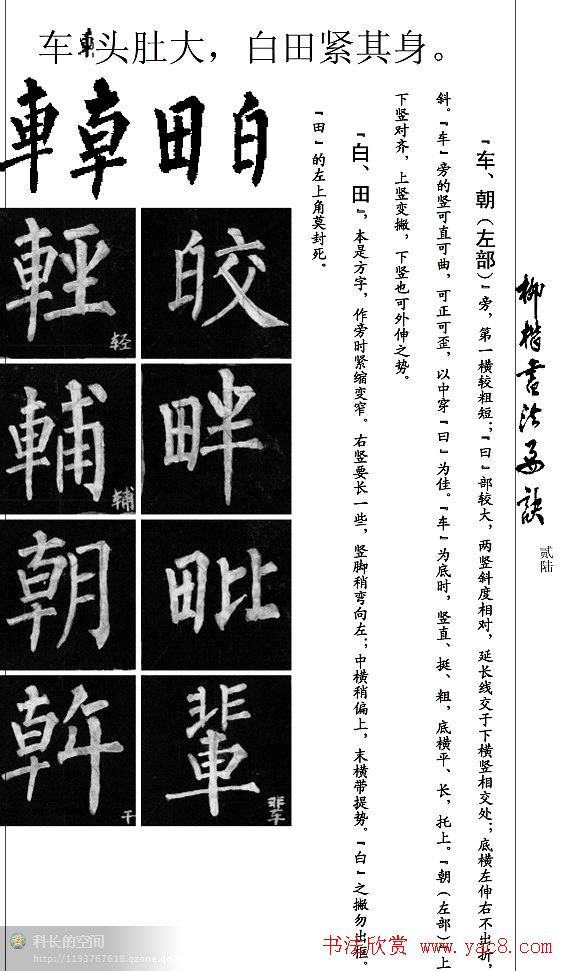 车𠦝头肚大，白田紧其身。
車𠦝田白
『车、朝（左部）』旁，第一横较粗短；『曰』部较大，两竖斜度相对，延长线交于下横竖相交处；底横左伸右不出折，
斜。『车』旁的竖可直可曲，可正可歪，以中穿『曰』为佳。『车』为底时，竖直、挺、粗，底横平、长，托上。『朝（左部）』上
下竖对齐，上竖变撇，下竖也可外伸之势。
『白、田』，本是方字，作旁时紧缩变窄。右竖要长一些，竖脚稍弯向左；中横稍偏上，末横带提势。『白』之撇勿出框。
『田』的左上角莫封死。
輕 轻
皎
輔 辅
畔
朝
毗
幹 干
輩 辈
柳楷书法要诀
贰陆
科长的空间
http://1193767618.qzone.qq.com
书法欣赏 www.yac8.com